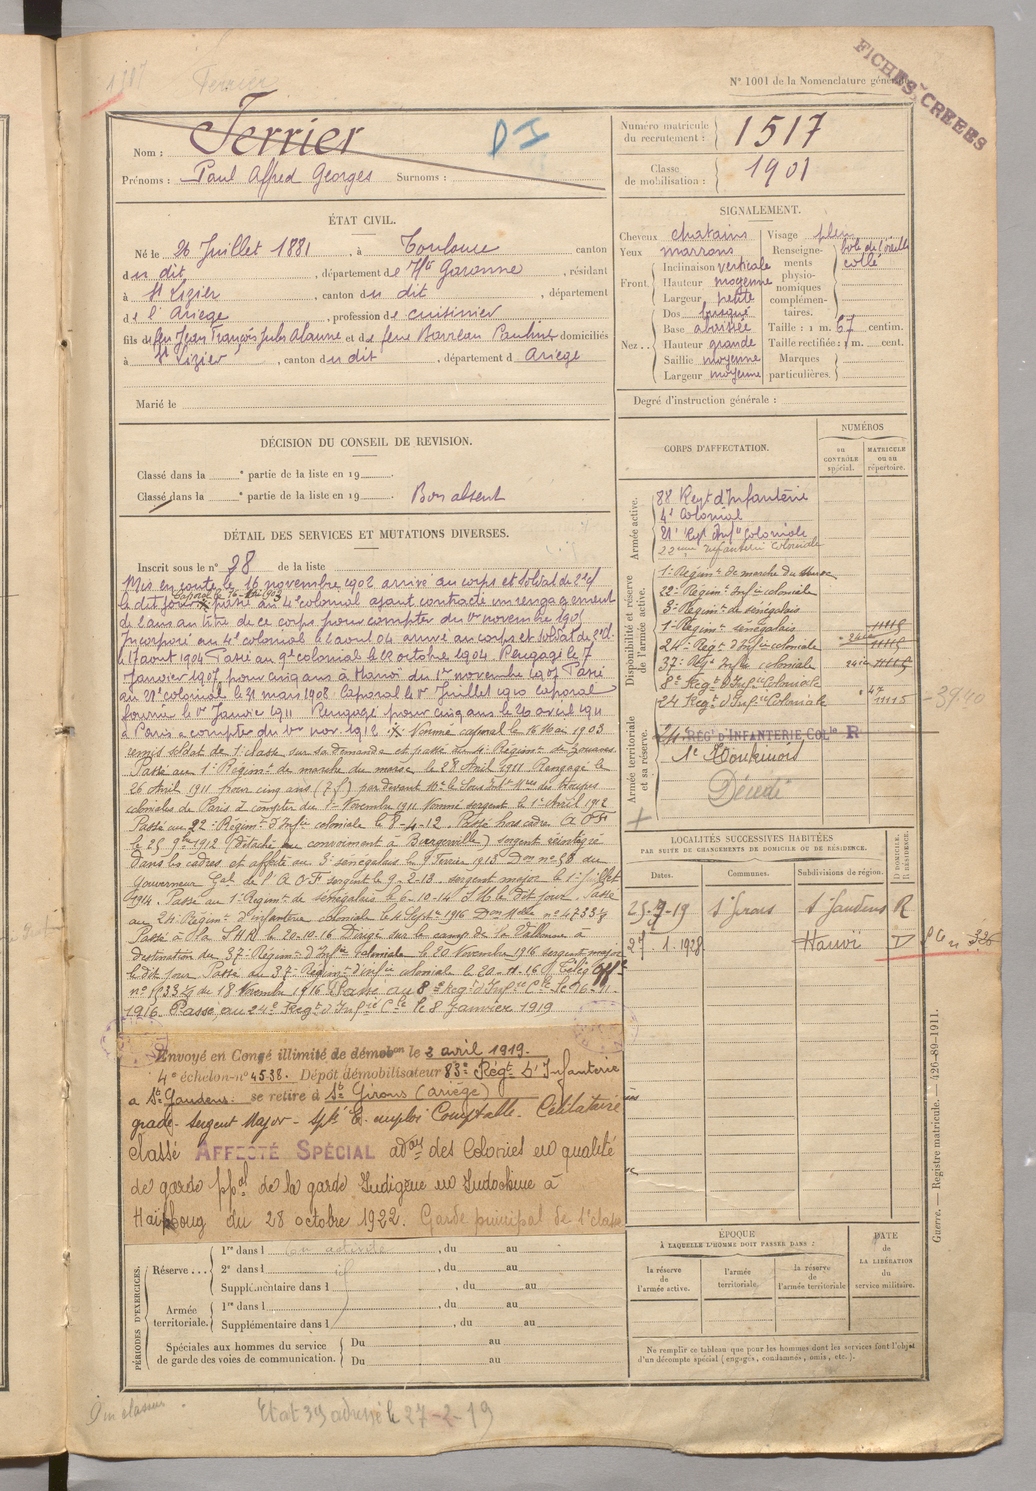 FICHES CREEES
1517 Ferrier
N° 1001 de la Nomenclature générale
Nom : Ferrier
DI
Prénoms : Paul Alfred Georges Surnoms :
Numéro matricule du recrutement : 1517
Classe de mobilisation : 1901
ÉTAT CIVIL.
Né le 26 Juillet 1881, à Toulouse canton
du dit, département de Hte Garonne, résidant
à St Lizier, canton du dit, département
de l'Ariège, profession de cuisinier
fils de feu Jean François Jules Alanne et de feue Barreau Pauline domiciliés
à St Lizier, canton du dit, département d Ariège
Marié le
SIGNALEMENT.
Cheveux chatains
Yeux marrons
Front. Inclinaison verticale
Hauteur moyenne
Largeur petite
Nez. Dos busqué
Base abaissée
Hauteur grande
Saillie moyenne
Largeur moyenne
Visage plein
Renseignements physionomiques complémentaires. lobe de l'oreille collé
Taille : 1 m. 67 centim.
Taille rectifiée : 1 m. cent.
Marques particulières.
Degré d'instruction générale :
DÉCISION DU CONSEIL DE REVISION.
Classé dans la e partie de la liste en 19
Classé dans la e partie de la liste en 19 Bon absent
DÉTAIL DES SERVICES ET MUTATIONS DIVERSES.
Inscrit sous le n° 28 de la liste
Mis en route le 16 novembre 1902 arrivé au corps et soldat de 2e cl
Caporal le 16 Mai 1903
le dit jour passé au 4e colonial ayant contracté un rengagement
de 2 ans au titre de ce corps pour compter du 1er novembre 1905
Incorporé au 4e colonial le 2 aout 04 arrivé au corps et soldat de 2e cl.
le 17 aout 1904 Passé au 9e colonial le 22 octobre 1904 Rengagé le 7
Janvier 1907 pour cinq ans à Hanoi du 1er novembre 1907 Passé
au 21e colonial le 31 mars 1908 Caporal le 1er Juillet 1910 caporal
fourrier le 1er Janvier 1911 Rengagé pour cinq ans le 26 avril 1911
à Paris à compter du 1er nov. 1912 Nommé caporal le 16 Mai 1903
remis soldat de 1e classe sur sa demande et passé au 4e Régimt de Zouaves
Passé au 1er Régimt de marche du maroc le 28 Avril 1911 Rengagé le
26 Avril 1911 pour cinq ans par devant Mr le Sous Intt Mre des troupes
coloniales de Paris à compter du 1er Novembre 1911 Nommé sergent le 1er Avril 1912
Passé au 22e Régimt d'Infie coloniale le 8-4-12 Passé hors cadre A O F
le 25 9bre 1912 sergent réintégré
dans les cadres et affecté au 3e sénégalais le 9 Fevrier 1913 Don n° 58 du
Gouverneur Gal de l'A O F sergent le 9-2-13 sergent major le 1er juillet
1914. Passé au 1er Régimt de sénégalais le 6-10-14 le dit jour. Passé
au 24e Régimt d'infanterie coloniale le 4 Septre 1916 Don Melle n° 4733 3/8
Passé à la SHR le 20-10-16 Dirigé sur le camp de la Vallonne à
destination du 37e Régimt d'Infie coloniale le 20 Novembre 1916 sergent major
le dit jour Passé au 37e Régimt d'infie coloniale le 20-11-16
du 18 Novembre 1916 Passé au 8e Regt d'Infie Cle le 16-11-
1916. Passé au 24e Regt d'Infie Cle le 8 Janvier 1919
Envoyé en Congé illimité de démobon le 2 avril 1919.
4e échelon-n° 4538. Dépôt démobilisateur 83e Régt D'Infanterie
à St Gaudens. se retire à St Girons (ariège)
grade- Sergent Major - emploi Comptable. Célibataire
classé AFFECTÉ SPÉCIAL adon des Colonies en qualité
de garde ppal de la garde Indigène en Indochine à
Haïphong du 28 octobre 1922. Garde principal de 1e classe
CORPS D'AFFECTATION.
NUMÉROS
au CONTRÔLE spécial.
MATRICULE ou au répertoire.
Armée active.
88e Regt d'Infanterie
4e Colonial
21e Regt Infie Coloniale
22eme Infanterie Coloniale
Disponibilité et réserve de l'armée active.
1er Régimt de marche du Maroc
22e Régimt Infie coloniale
3e Régimt de sénégalais
1er Régimt sénégalais 1115
24e Regt d'Infie coloniale 1115
37e Regt Infie coloniale 1115
8e Regt d'Infie Coloniale
24 Regt d'Infie Coloniale 47 1115
3940
Armée territoriale et sa réserve.
24e RÉGt D'INFANTERIE COLle R
1er Tonkinois
Décédé
LOCALITÉS SUCCESSIVES HABITÉES
PAR SUITE DE CHANGEMENTS DE DOMICILE OU DE RÉSIDENCE.
Dates. Communes. Subdivisions de région. D DOMICILE. R RÉSIDENCE.
25-9-19 St Girons St Gaudens R
27.1.1928 Hanoï D 326
ÉPOQUE
À LAQUELLE L'HOMME DOIT PASSER DANS :
la réserve de l'armée active.
l'armée territoriale.
la réserve de l'armée territoriale
DATE de LA LIBÉRATION du service militaire.
Ne remplir ce tableau que pour les hommes dont les services font l'objet d'un décompte spécial (engagés, condamnés, omis, etc.).
PÉRIODES D'EXERCICES.
Réserve... 1re dans l en activité, du au
2e dans l id, du au
Supplémentaire dans l, du au
Armée territoriale. 1re dans l, du au
Supplémentaire dans l, du au
Spéciales aux hommes du service de garde des voies de communication. Du au
Du au
Guerre. — Registre matricule. — 426-89-1911.
Etat 39 adressé le 27-2-19